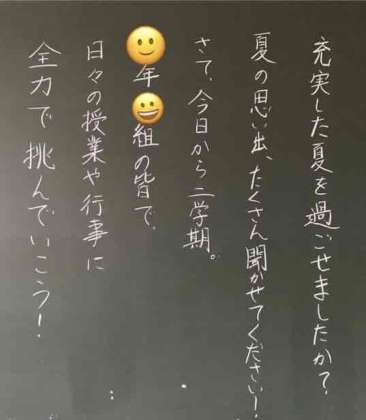 充実した夏を過ごせましたか?
夏の思い出、たくさん聞かせてください!
さて、今日から二学期。
年 組の皆で、
日々の授業や行事に
全力で挑んでいこう!